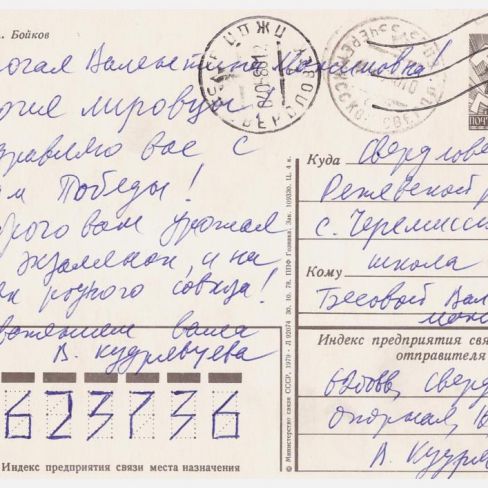 . Бойков
рогая Валентина Максимовна!
рогие мировцы!
здравляю вас с
ём Победы!
брого вам урожая
экзаменах, и на
ях родного совхоза!
важением ваша
В. Кудрявцева
623736
Индекс предприятия связи места назначения
© Министерство связи СССР, 1979
30. 10. 78. ППФ Гознака. Зак. 109330. Ц. 4 к.
ПОЧТ
Куда свердловс
Режевской р
с. Черемисск
школа
Кому
Бесовой Вал
Индекс предприятия связ
отправителя
свердл
Опорная,
В. Кудрявц